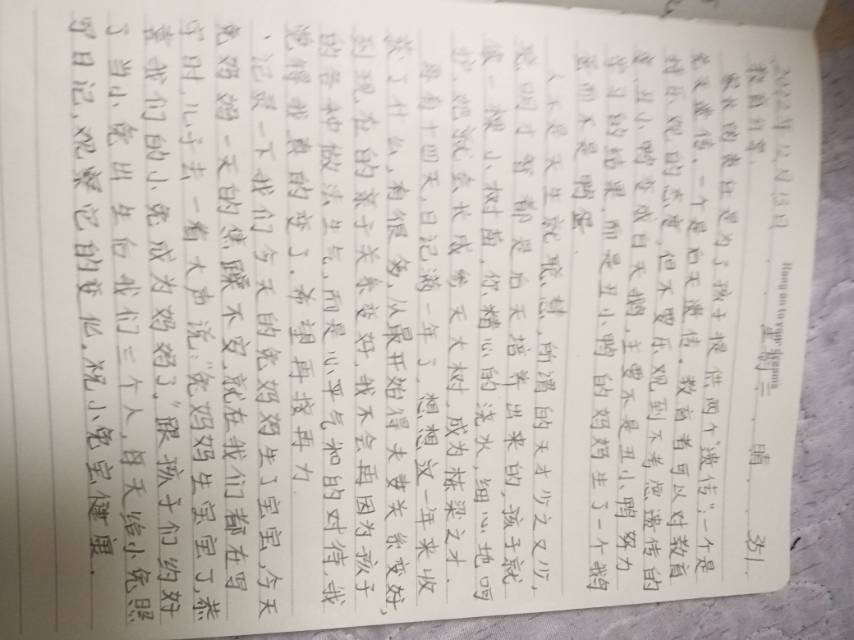 Hang on to your dreams
2022年12月13日 星期二 晴 351.
教育行家.
家长的责任是为了孩子提供两个"遗传",一个是
先天遗传,一个是后天遗传。教育者可以对教育
持乐观的态度,但不要乐观到不考虑遗传的
度,丑小鸭变成白天鹅,主要不是丑小鸭努力
学习的结果,而是丑小鸭的妈妈生了一个鹅
蛋而不是鸭蛋.
人不是天生就聪慧,所谓的天才少之又少,
聪明才智都是后天培养出来的,孩子就
像一棵小树苗,你精心的浇水,细心地呵
护,她就会长成参天大树,成为栋梁之才.
再有十四天,日记满一年了,想想这一年来收
获了什么,有很多,从最开始得夫妻关系变好,
到现在的亲子关系变好,我不会再因为孩子
的各种做法生气,而是心平气和的对待,我
觉得我真的变了.希望再接再力
记录一下我们今天的兔妈妈生了宝宝,今天
兔妈妈一天的焦躁不安,就在我们都在写
字时,儿子去一看大声说:"兔妈妈生宝宝了,恭
喜我们的小兔成为妈妈了,"跟孩子们约好
了当小兔出生后我们三个人,每天给小兔照
写日记,观察它的变化,祝小兔宝健康.